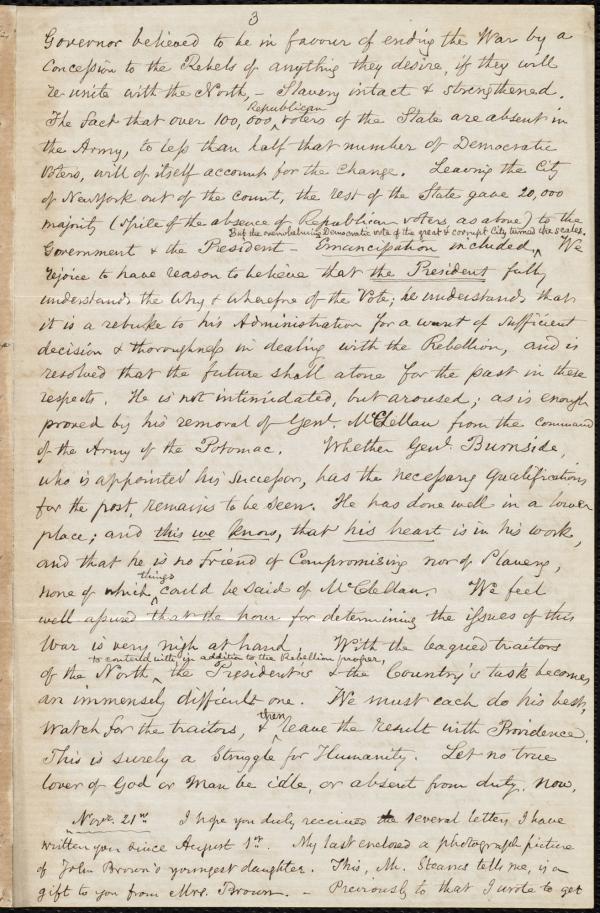 3
Governor believed to be in favour of ending the War by a
Concession to the Rebels of anything they desire, if they will
re-unite with the North, - Slavery intact & strengthened.
Republican
The fact that over 100,000 voters of the State are absent in
the Army, to less than half that number of Democratic
Voters, will of itself account for the change. Leaving the City
of NewYork out of the count, the rest of the State gave 20,000
majority (spite of the absence of Republican voters as above) to the
But the overwhelming Democratic vote of the great & corrupt City turned the scales.
Government & the President - Emancipation included, We
rejoice to have reason to believe that the President fully
understands the Why & Wherefore of the Vote; he understands that
it is a rebuke to his Administration for a want of sufficient
decision & thoroughness in dealing with the Rebellion, and is
resolved that the future shall atone for the past in these
respects. He is not intimidated, but aroused; as is enough
proved by his removal of Genl. McClellan from the command
of the Army of the Potomac. Whether Genl. Burnside,
who is appointed his successor, has the necessary qualifications
for the post, remains to be seen. He has done well in a lower
place; and this we know, that his heart is in his work,
and that he is no friend of Compromising nor of Slavery,
things
none of which could be said of McClellan. We feel
well assured that the hour for determining the issues of this
War is very nigh at hand. With the leagued traitors
to contend with, in addition to the Rebellion proper,
of the North, the President's & the Country's task becomes
an immensely difficult one. We must each do his best,
then
watch for the traitors, & leave the result with Providence.
This is surely a Struggle for Humanity. Let no true
lover of God or Man be idle, or absent from duty, now.
Novr. 21st. I hope you duly received the several letters I have
written you since August 1st. My last enclosed a photograph picture
of John Brown's youngest daughter. This, Mr. Stearns tells me, is a
gift to you from Mrs. Brown. - Previously to that I wrote to get